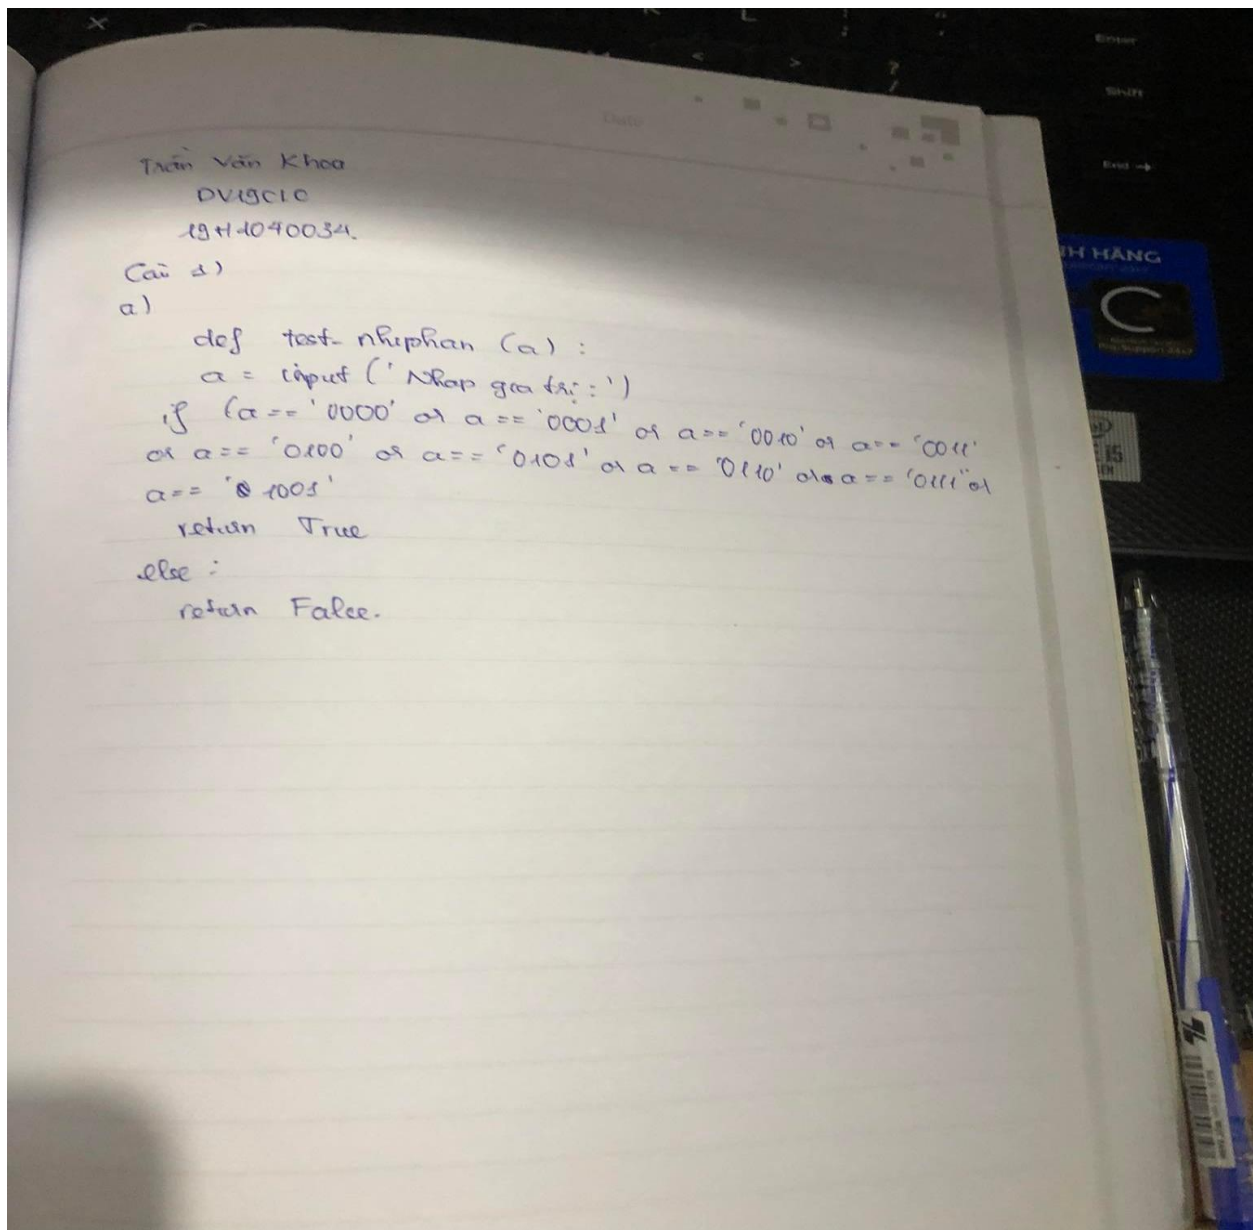 Date
Trần Văn Khoa
DV19C10
19H1040034.
Câu 1)
a)
def test_nhiphan (a) :
a = input ('Nhap gia trị : ')
if (a == '0000' or a == '0001' or a == '0010' or a == '0011'
or a == '0100' or a == '0101' or a == '0110' or a == '0111' or
a == '1001'
return True
else :
return False.
Enter
Shift
End →
H HÃNG
i5